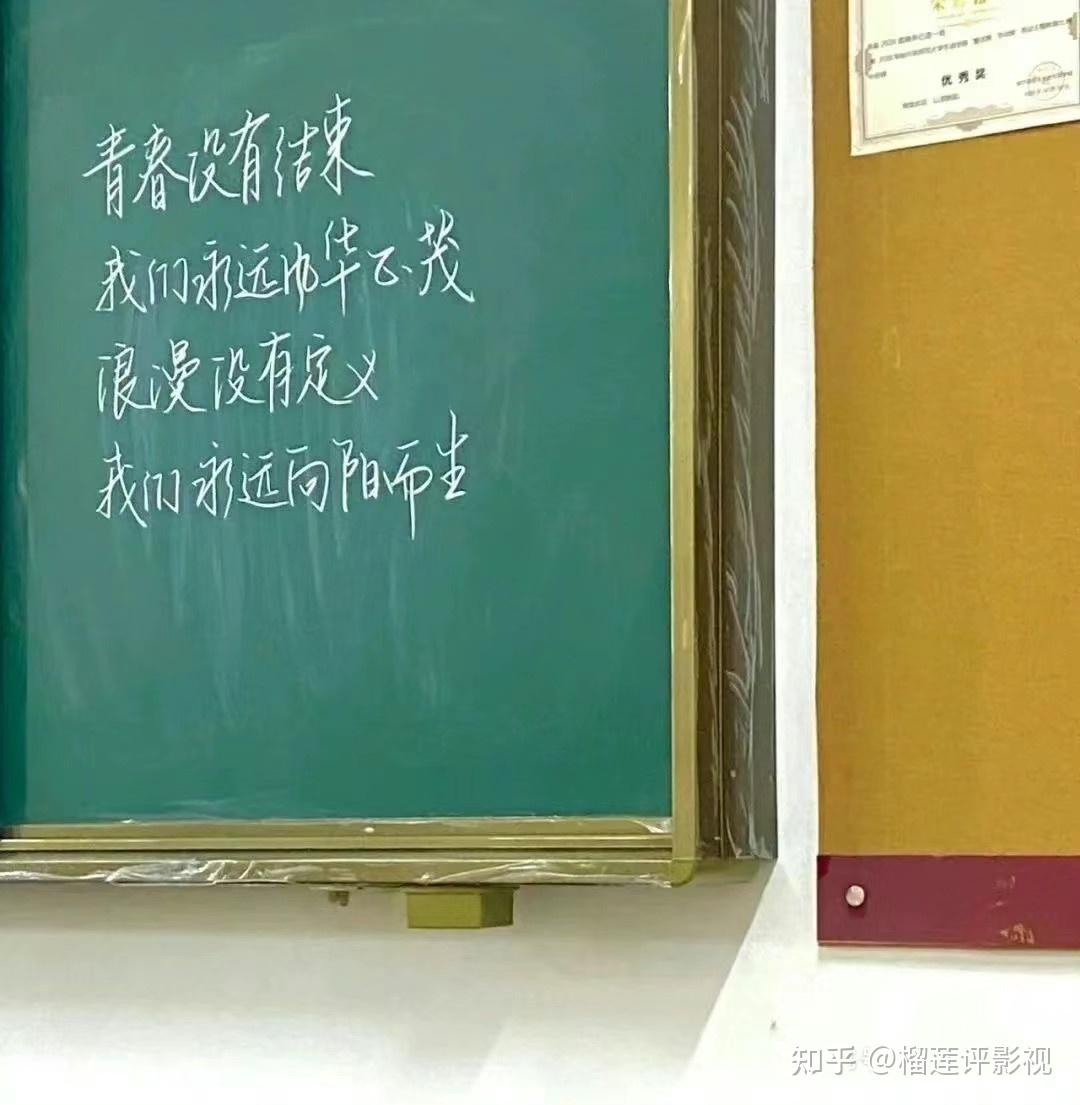 青春没有结束
我们永远风华正茂
浪漫没有定义
我们永远向阳而生
优秀奖
知乎 @榴莲评影视